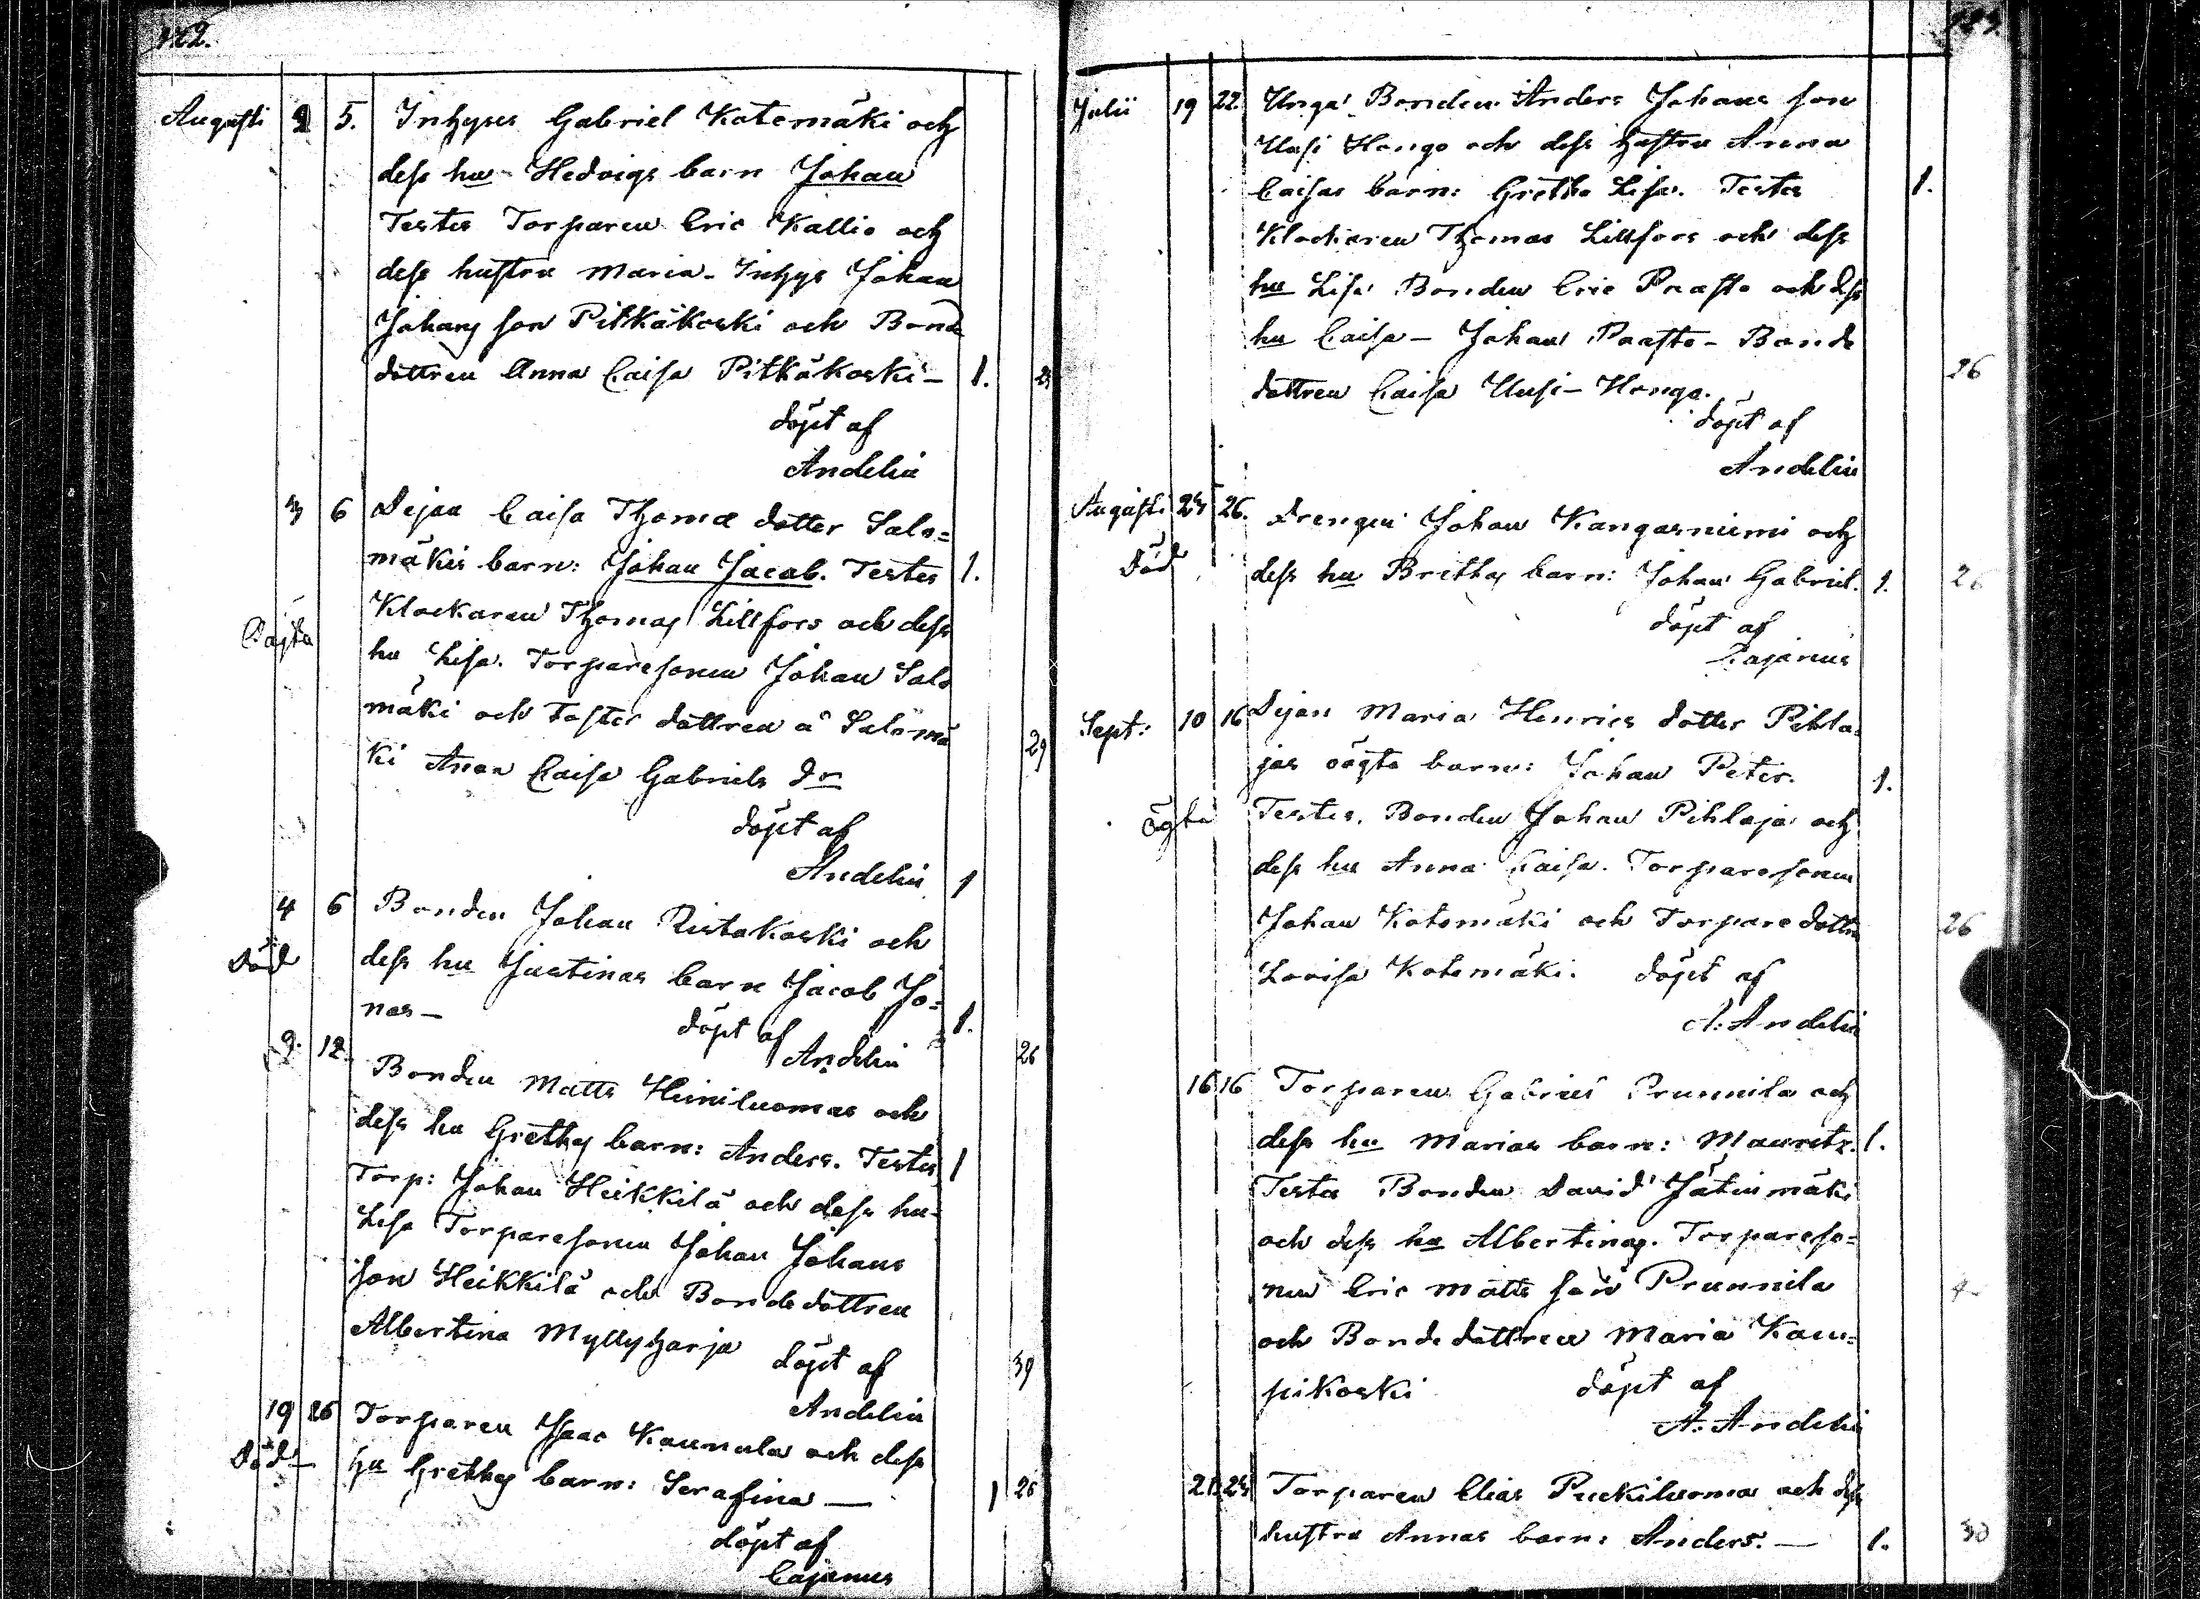 182.
Augusti 2 5. Inhyses Gabriel Katemäki och
dess hu Hedvigs barn Johan
Testes Torparen Eric Kallio och
dess hustru Maria - Inhys Johan
Johans son Pitkäkoski och Bonde
dottren Anna Caisa Pitkäkoski - 1.
döpt af
Andelin
3 6 Pejan Caisa Thomæ dotter Salo=
mäkis barn: Johan Jacob. Testes 1.
Klockaren Thomas Lillfors och dess
Oägta
hu Lisa. Torparesonen Johan Salo
mäki och Foster dottren å Salomä
ki Anna Caisa Gabriels dr 29
döpt af
Andelin 1
4 6 Bonden Johan Ristakoski och
Död dess hu Justinas barn Jacob Jo=
nas - 1.
döpt af
Andelin 26
9. 12. Bonden Matts Heiniluomas och
dess hu Grethas barn: Anders. Testes 1
Torp: Johan Heikkilä och dess hu
Lisa Torparesonen Johan Johans
son Heikkilä och Bonde dottren
Albertina Myllyharja
döpt af 39
Andelin
19 26 Torparen Isaac Kaunula och dess
Död - hu Grethas barn: Serafina - 1 26
döpt af
Cajanus
183.
Julii 19 22. Unga Bonden Anders Johans son
Uusi Hongo och dess hustru Anna
Caisas barn: Gretha Lisa. Testes 1.
Klockaren Thomas Lillfors och dess
hu Lisa Bonden Eric Paasto och dess
hu Caisa - Johan Paasto - Bonde
dottren Caisa Uusi - Hongo. 26
döpt af
Andelin
Augusti 24 26. Drengen Johan Kangasniemi och
Död dess hu Brithas barn: Johan Gabriel. 1. 26
döpt af
Cajanus
Sept: 10 16 Pejan Maria Henrics dotter Pihla=
jas oägta barn: Johan Peter. 1.
Oägta Testes. Bonden Johan Pihlaja och
dess hu Anna Caisa. Torparesonen
Johan Kotomäki och Torpare dottren 26
Lovisa Kotomäki. döpt af
A. Andelin
16 16 Torparen Gabriel Prunnila och
dess hu Marias barn: Mauritz. 1.
Testes Bonden David Jätinmäki
och dess hu Albertinas. Torpareso=
nen Eric Matts son Prunnila
och Bonde dottren Maria Kam=
pikoski döpt af
A. Andelin
21 24 Torparen Elias Puskiluoma och dess
hustru Annas barn: Anders. - 1. 30